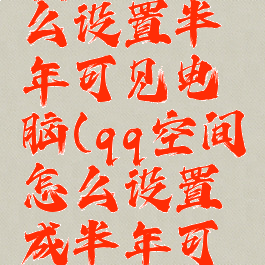 么设置半
年可见电
脑(qq空间
怎么设置
成半年可